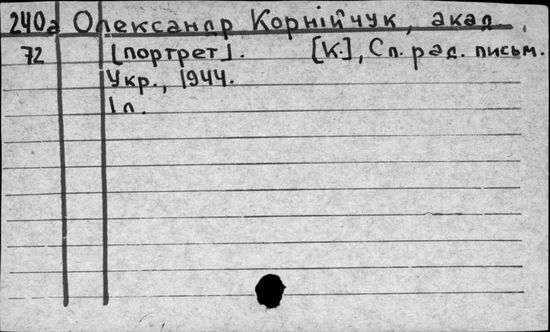 240а Олександр Корнійчук, акад.
72 [портрет]. [К.], Сп. рад. письм.
Укр., 1944.
1 л.